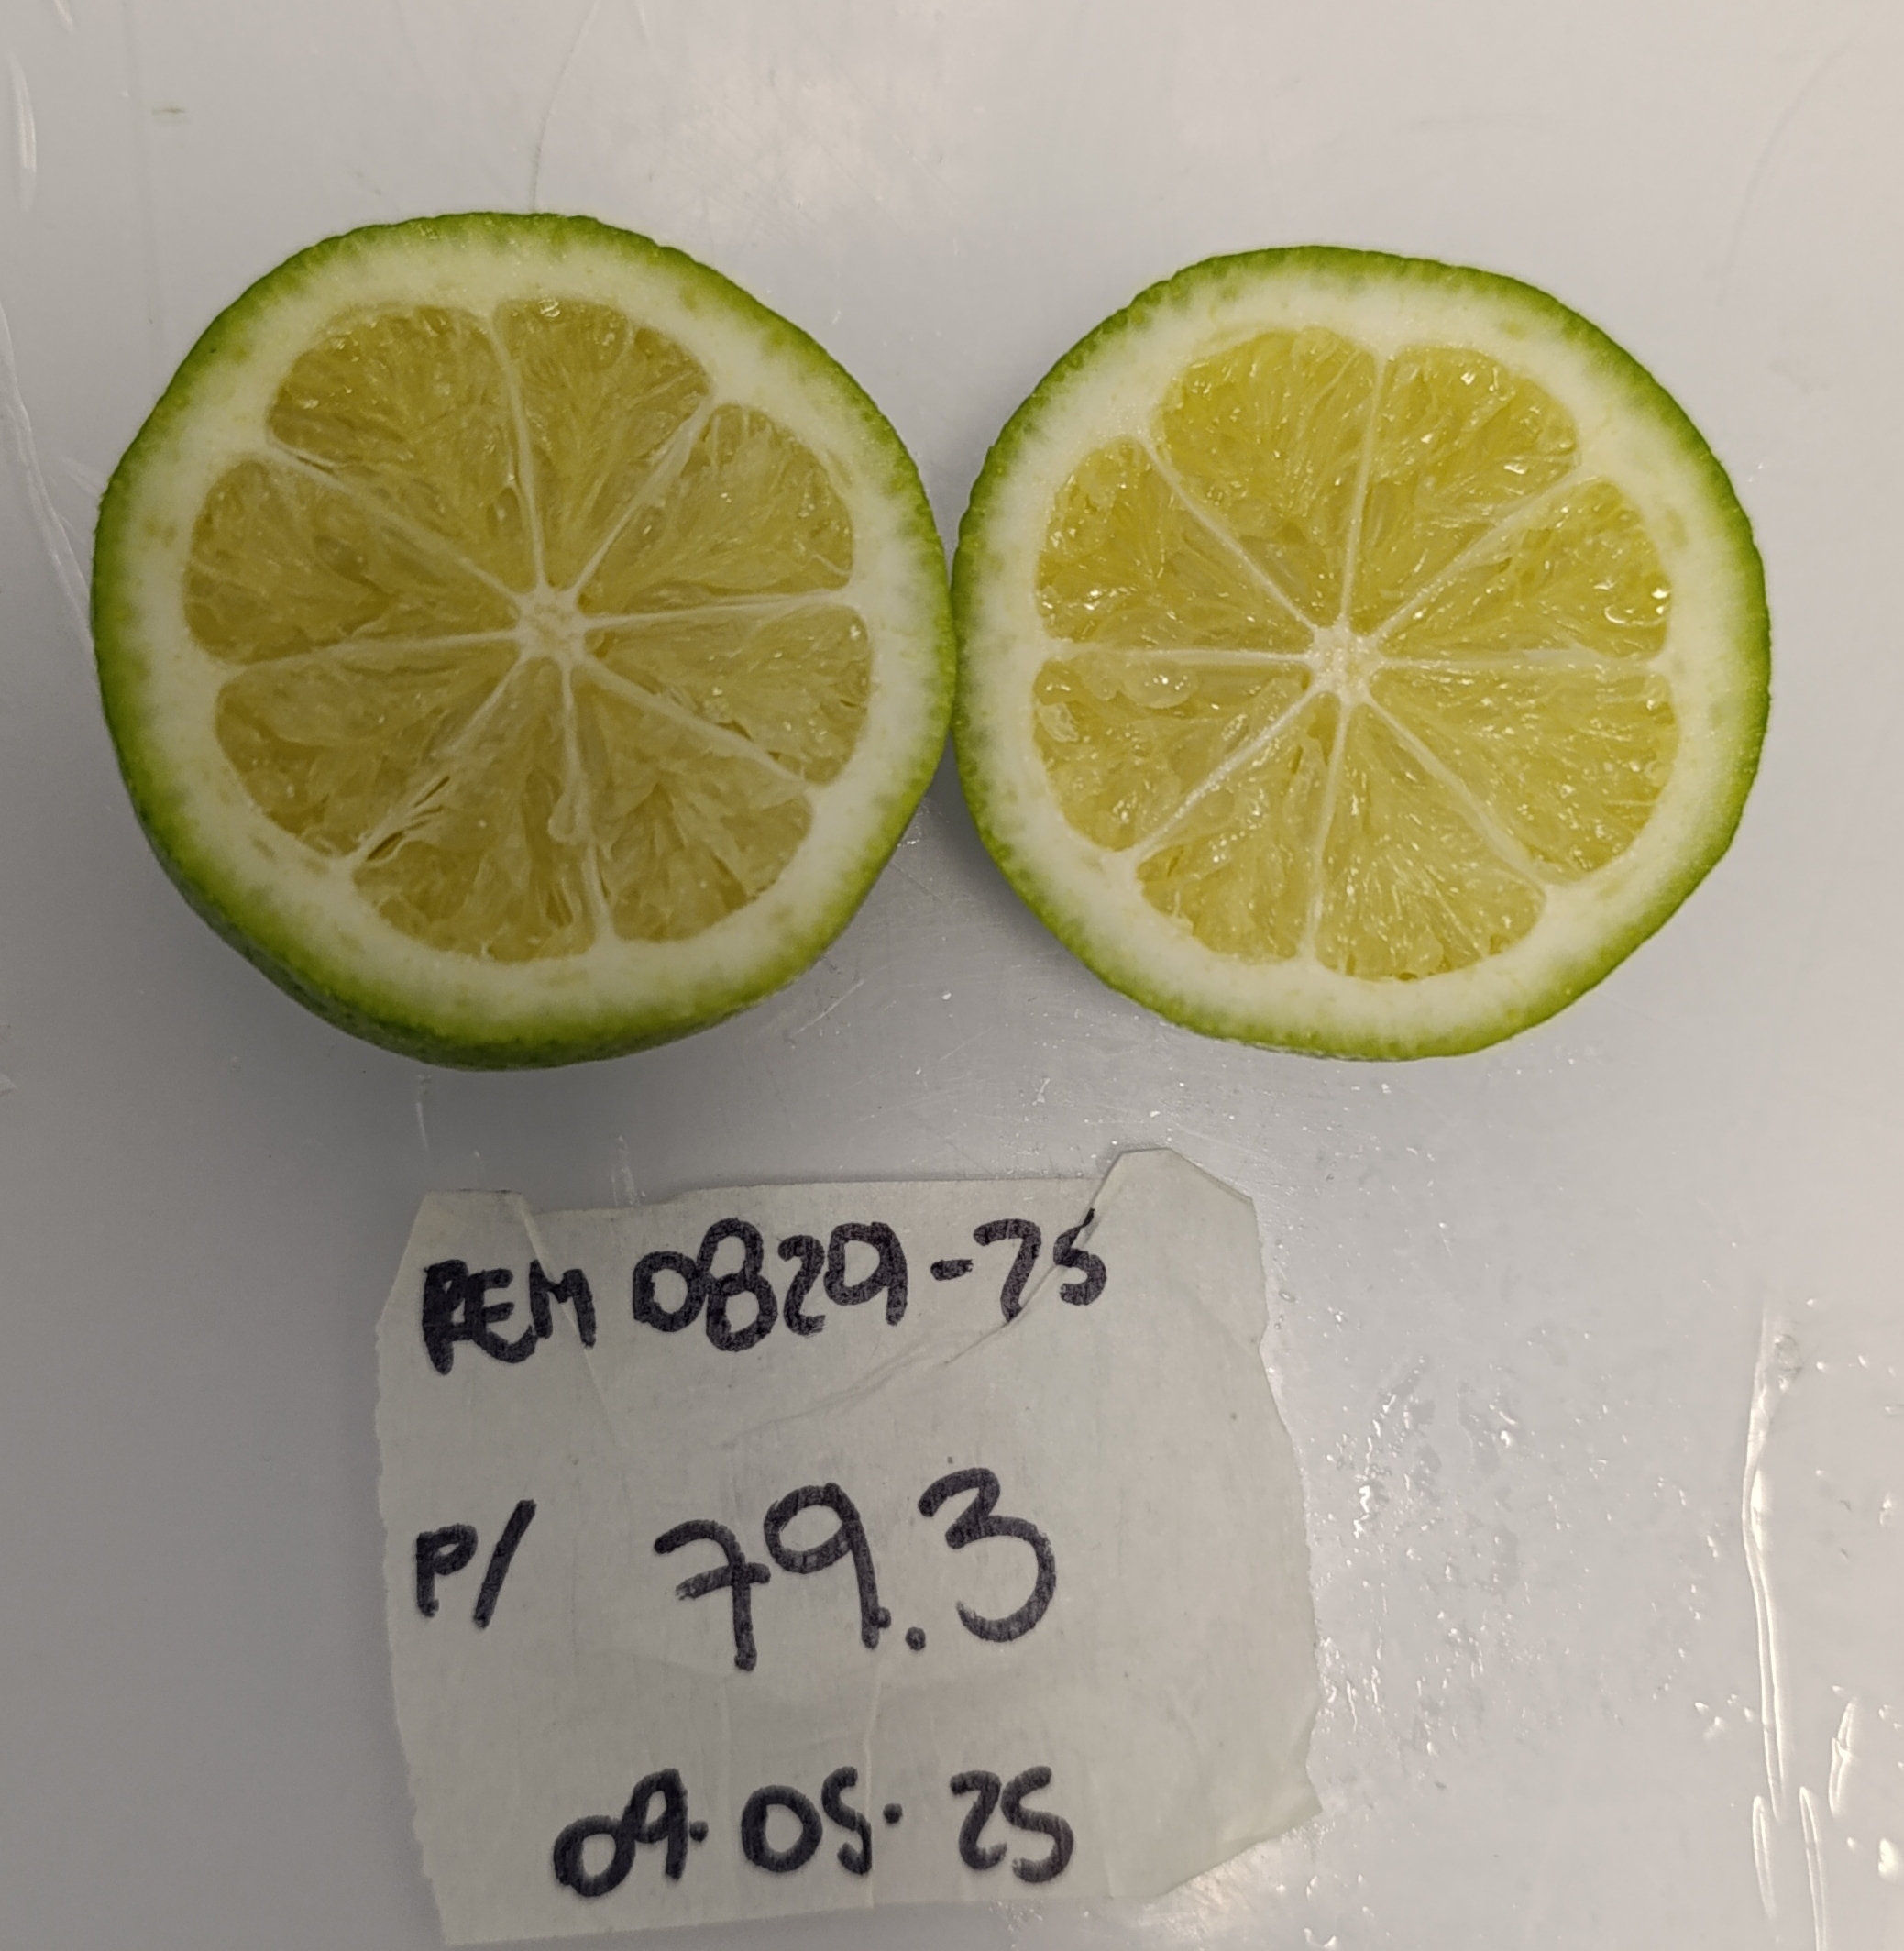 REM 0829-25
P/ 79.3
09.05.25